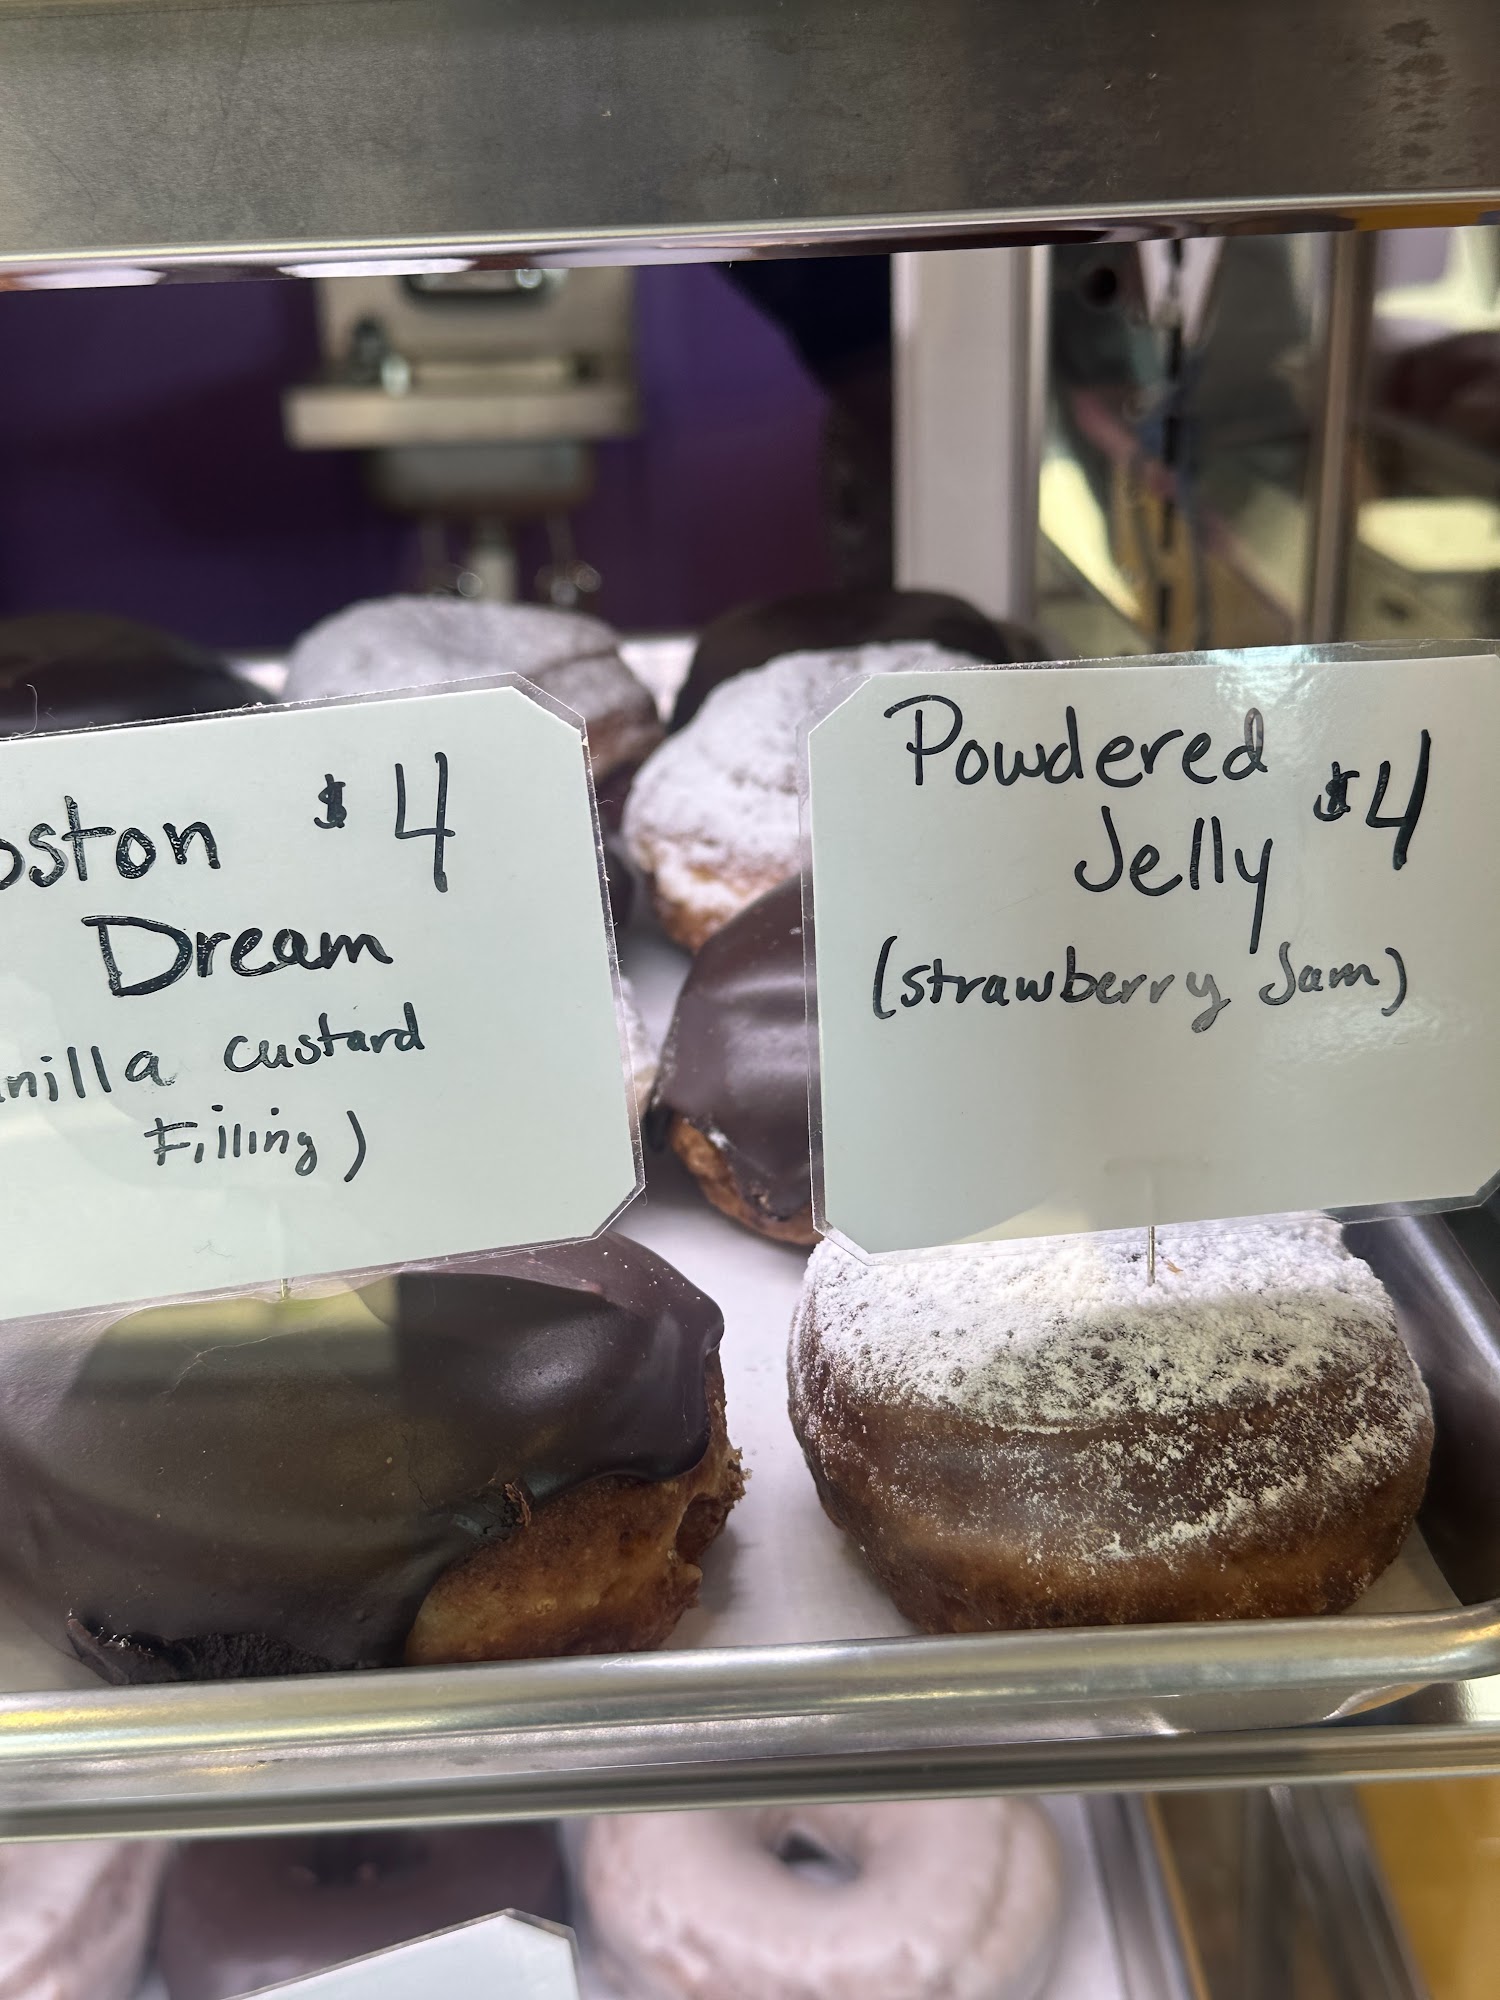 oston $4
Dream
nilla custard
Filling)
Powdered
Jelly $4
(strawberry Jam)